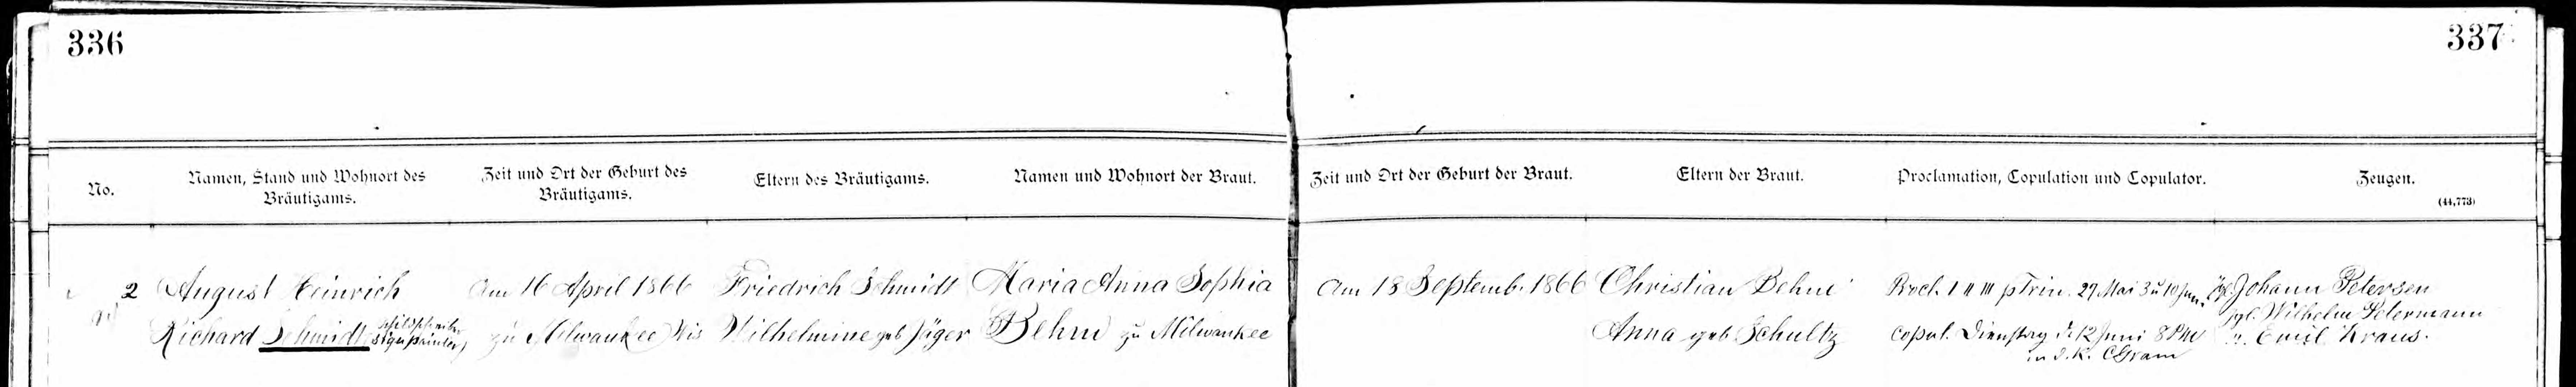 336
337
No.
Namen, Stand und Wohnort des
Bräutigams.
Zeit und Ort der Geburt des
Bräutigams.
Eltern des Bräutigams.
Namen und Wohnort der Braut.
Zeit und Ort der Geburt der Braut.
Eltern der Braut.
Proclamation, Copulation und Copulator.
Zeugen.
(44,773)
2
August Heinrich
Richard Schmidt
sign painter
Am 16 April 1866
zu Milwaukee Wis
Friedrich Schmidt
Wilhelmine geb Jäger
Maria Anna Sophia
Behm zu Milwaukee
Am 18 Septemb. 1866
Christian Behm
Anna geb. Schultz
Procl. I II III p Trin. 27 Mai 3 u 10 Juni
Copul. Dienstag d. 12 Juni 8 PM
in d. K.
Jgl. Johann Petersen
jgl. Wilhelm Petermann
u. Emil Kraus.